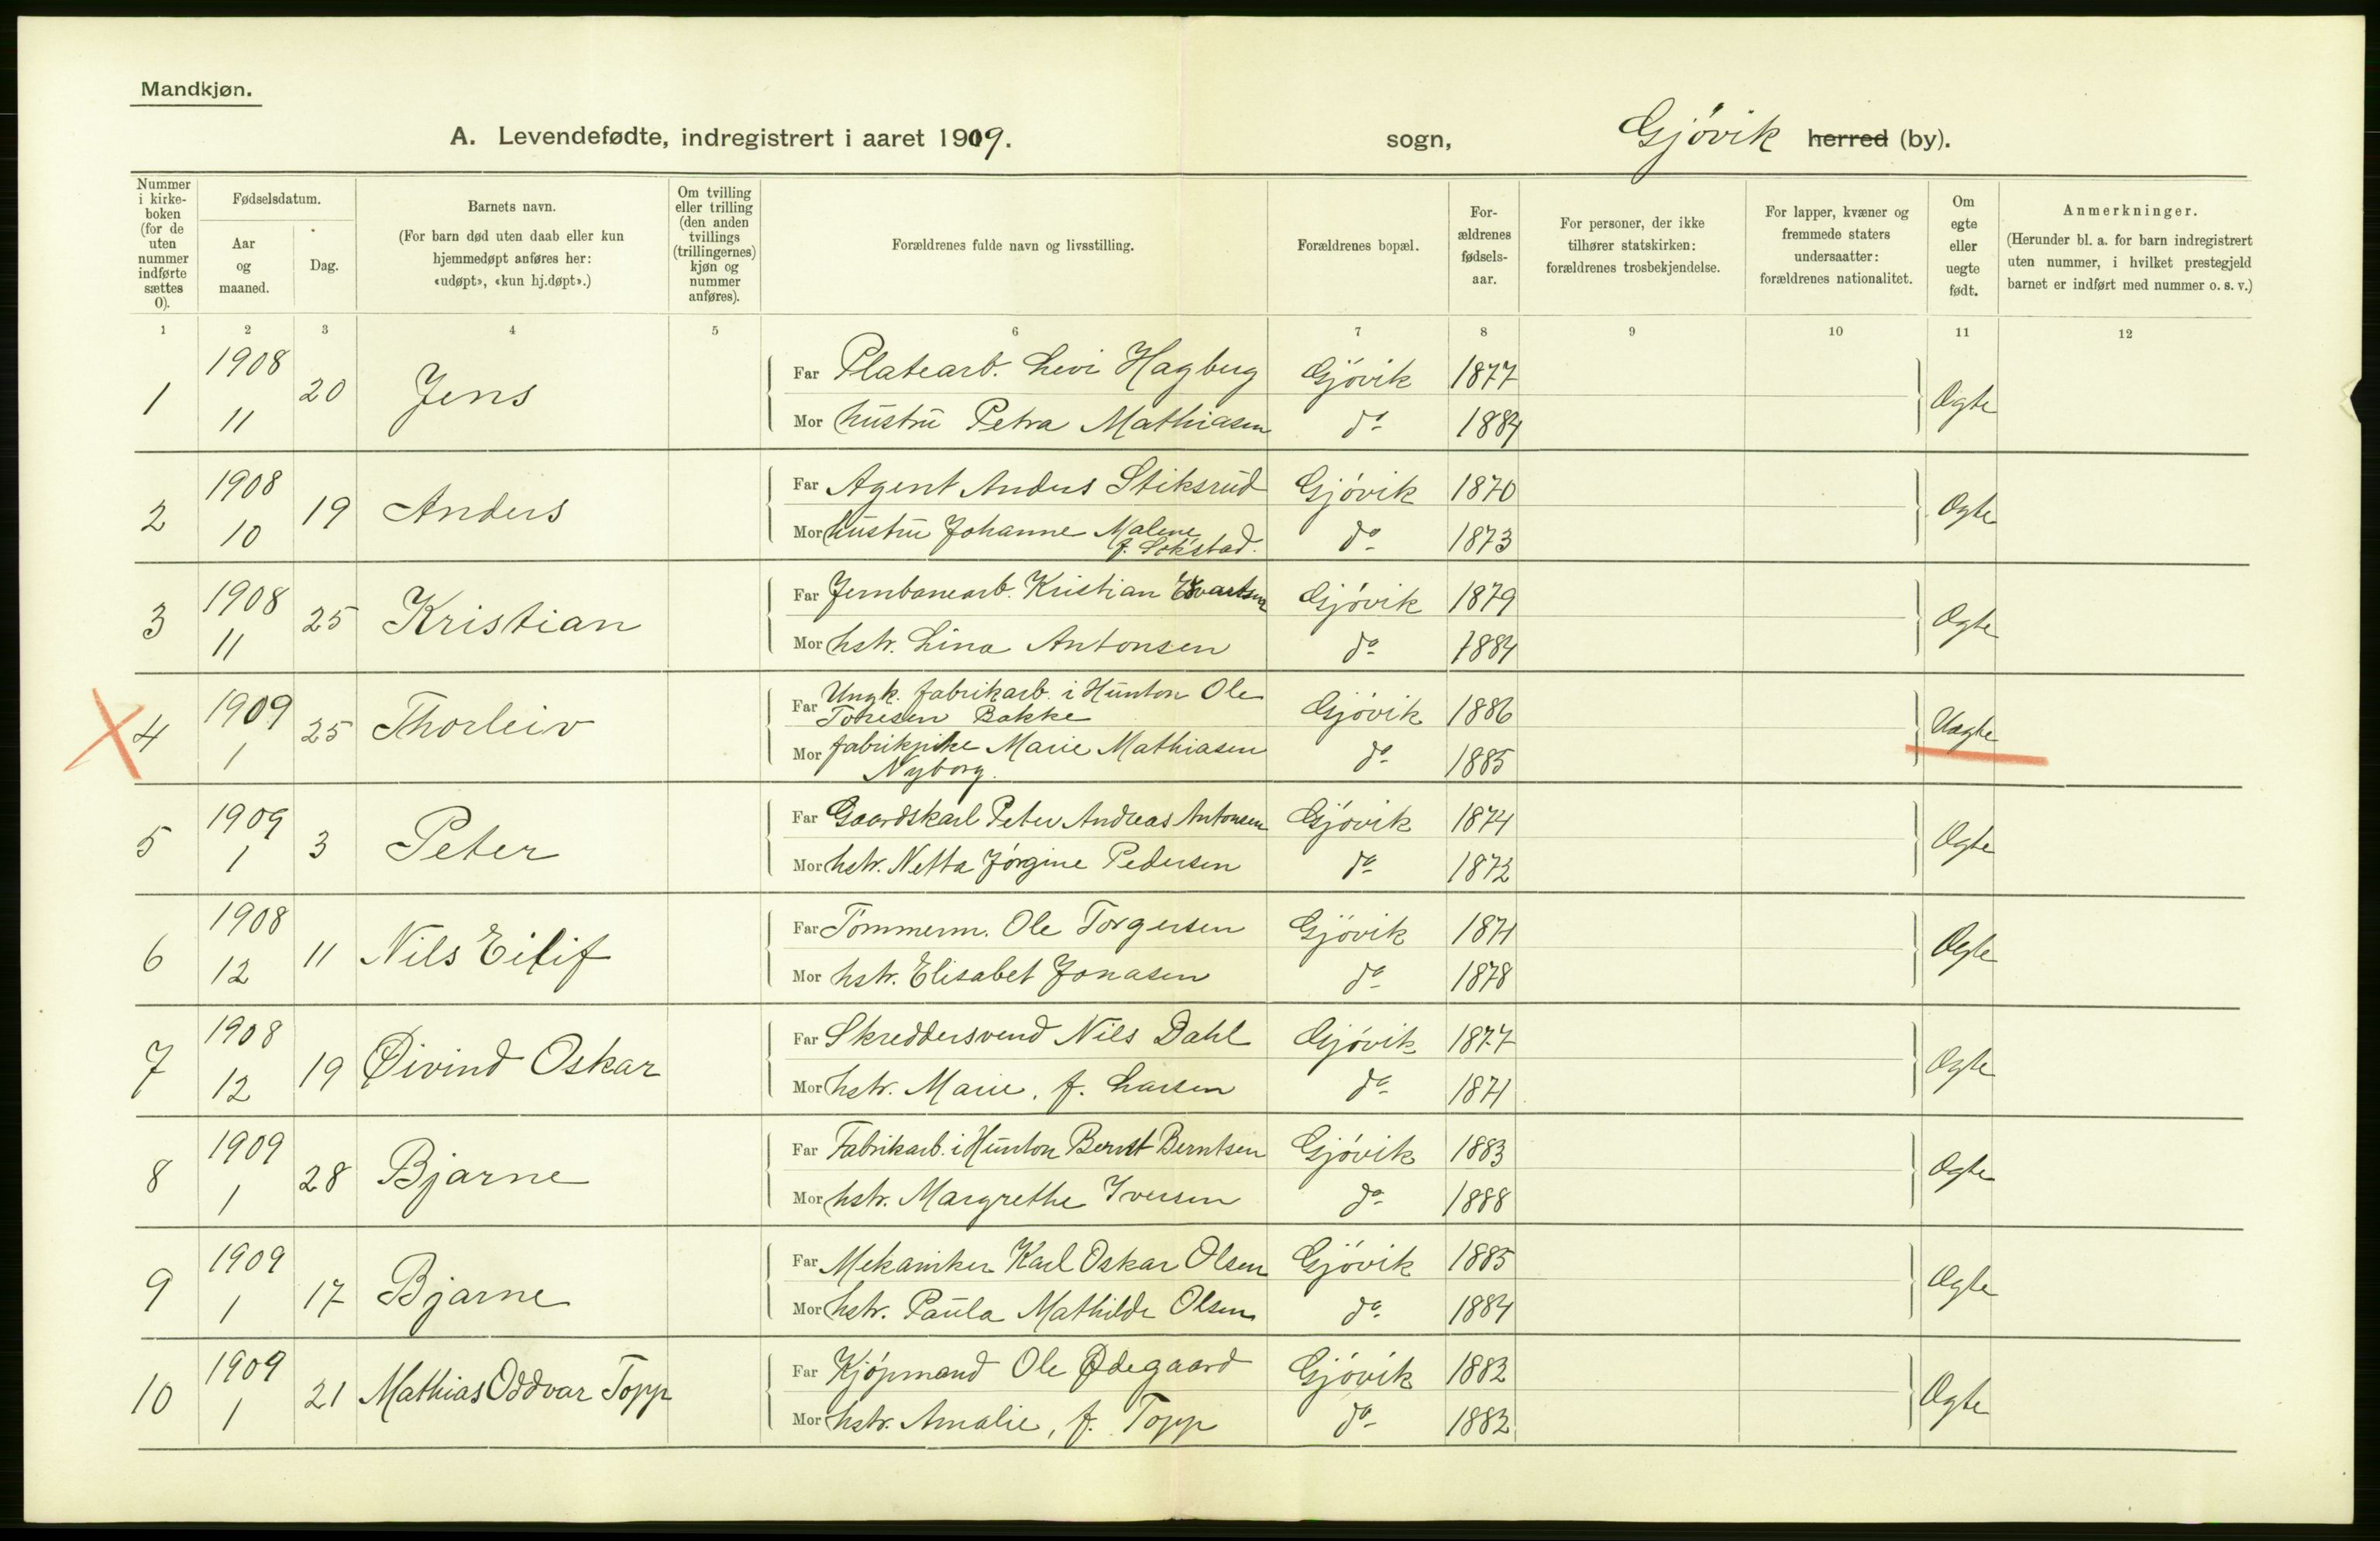 Mandkjøn.
A. Levendefødte, indregistrert i aaret 1909. sogn, Gjövik herred (by).
Nummer i kirke-boken (for de uten nummer indførte sættes 0).
Fødselsdatum.
Aar og maaned.
Dag.
Barnets navn.
(For barn død uten daab eller kun hjemmedøpt anføres her: «udøpt», «kun hj.døpt».)
Om tvilling eller trilling (den anden tvillings (trillingernes) kjøn og nummer anføres).
Forældrenes fulde navn og livsstilling.
Forældrenes bopæl.
For-ældrenes fødsels-aar.
For personer, der ikke tilhører statskirken: forældrenes trosbekjendelse.
For lapper, kvæner og fremmede staters undersaatter: forældrenes nationalitet.
Om egte eller uegte født.
Anmerkninger.
(Herunder bl. a. for barn indregistrert uten nummer, i hvilket prestegjeld barnet er indført med nummer o. s. v.)
1 2 3 4 5 6 7 8 9 10 11 12
1 1908 11 20 Jens
Far Platearb. Levi Hagberg Gjövik 1877
Mor hustru Petra Mathiasen do 1884
Ægte
2 1908 10 19 Anders
Far Agent Anders Stiksrud Gjövik 1870
Mor hustru Johanne Malene
f. Sokstad. do 1873
Ægte
3 1908 11 25 Kristian
Far Jernbanearb. Kristian Evartsen Gjövik 1879
Mor hstr. Lina Antonsen do 1884
Ægte
4 1909 1 25 Thorleiv
Far Ungk. fabrikarb. i Hunton Ole
Toresen Bakke Gjövik 1886
Mor fabrikpike Marie Mathiasen
Nyborg. do 1885
Uægte
5 1909 1 3 Peter
Far Gaardskarl Peter Andreas Antonsen Gjövik 1874
Mor hstr. Netta Jörgine Pedersen do 1872
Ægte
6 1908 12 11 Nils Eilif
Far Tömmerm. Ole Torgersen Gjövik 1871
Mor hstr. Elisabet Jonasen do 1878
Ægte
7 1908 12 19 Øivind Oskar
Far Skreddersvend Nils Dahl Gjövik 1877
Mor hstr. Marie, f. Larsen do 1871
Ægte
8 1909 1 28 Bjarne
Far Fabrikarb. i Hunton Bernt Berntsen Gjövik 1883
Mor hstr. Margrethe Iversen do 1888
Ægte
9 1909 1 17 Bjarne
Far Mekaniker Karl Oskar Olsen Gjövik 1885
Mor hstr. Paula Mathilde Olsen do 1884
Ægte
10 1909 1 21 Mathias Oddvar Topp
Far Kjöpmand Ole Ødegaard Gjövik 1882
Mor hstr. Amalie, f. Topp do 1882
Ægte